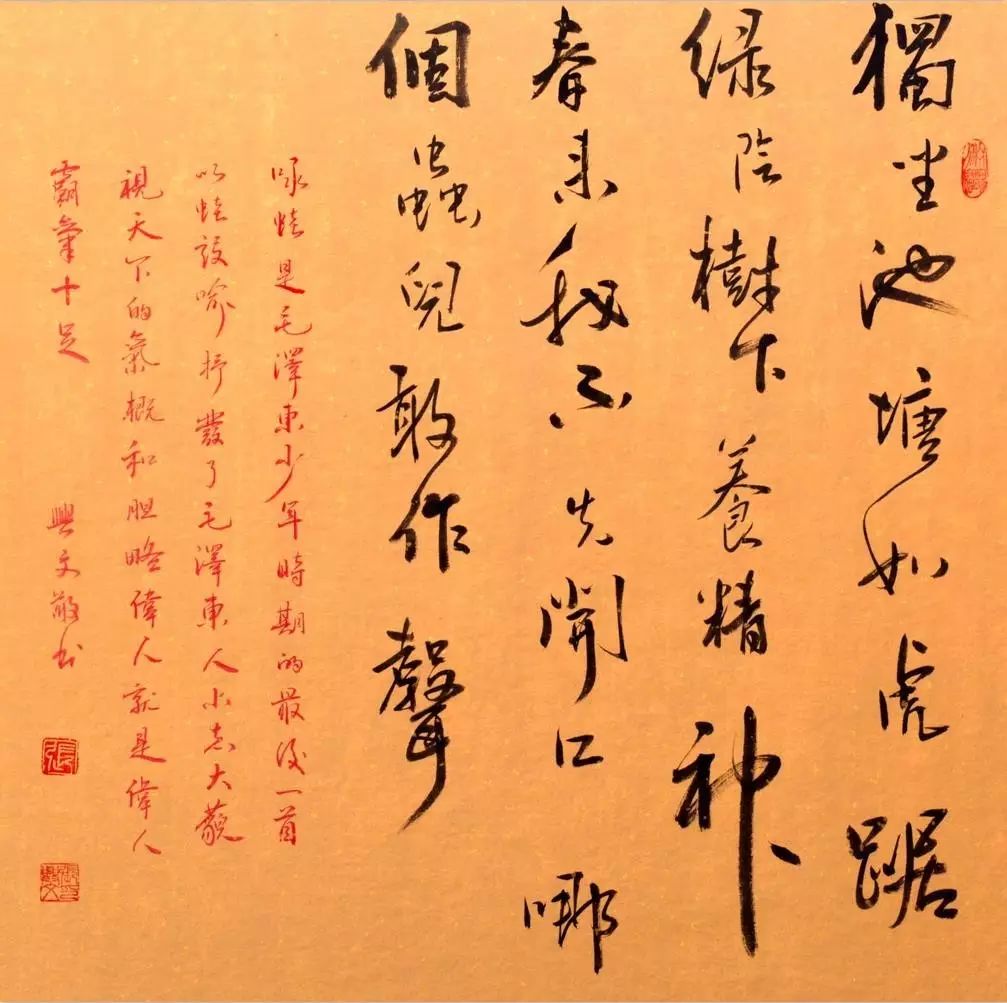 獨坐池塘如虎踞
绿陰樹下養精神
春来我不先開口哪
個蟲兒敢作聲
咏蛙是毛澤東少年時期的最後一首
以蛙設喻抒發了毛澤東人小志大藐
視天下的氣概和胆略偉人就是偉人
霸氣十足 興文敬书
張